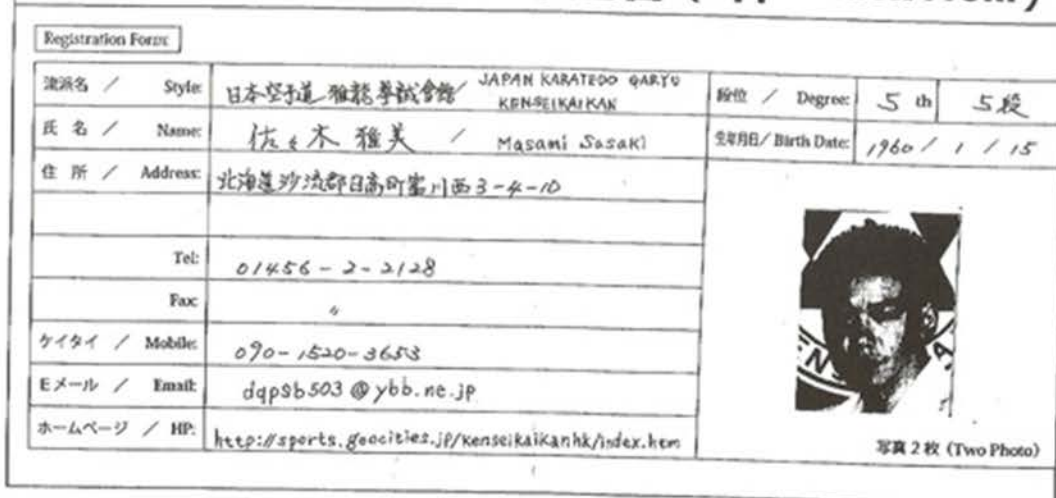 Registration Form:
流派名 / Style: 日本空手道 雅龍拳誠會館/ JAPAN KARATEDO GARYU KEN-SEIKAIKAN
段位 / Degree: 5 th 5段
氏 名 / Name: 佐々木 雅美 / Masami Sasaki
生年月日/ Birth Date: 1960 / 1 / 15
住 所 / Address: 北海道沙流郡日高町富川西3-4-10
Tel: 01456-2-2128
Fax: 〃
ケイタイ / Mobile: 090-1520-3653
Eメール / Email: dqpsb503@ybb.ne.jp
ホームページ / HP: http://sports.geocities.jp/kenseikaikanhk/index.htm
写真2枚 (Two Photo)